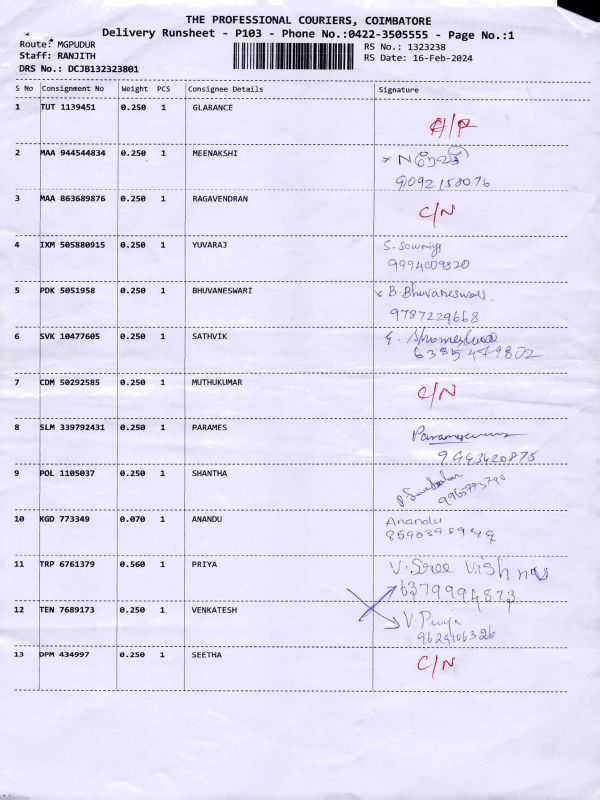 THE PROFESSIONAL COURIERS, COIMBATORE
Delivery Runsheet - P103 - Phone No.:0422-3505555 - Page No.:1
Route: MGPUDUR
RS No.: 1323238
Staff: RANJITH
RS Date: 16-Feb-2024
DRS No.: DCJB132323801
S No Consignment No Weight PCS Consignee Details Signature
1 TUT 1139451 0.250 1 GLARANCE
2 MAA 944544834 0.250 1 MEENAKSHI
9092158076
3 MAA 863689876 0.250 1 RAGAVENDRAN
C/N
4 IXM 505880915 0.250 1 YUVARAJ
S. Sowmiya
9994009320
5 PDK 5051958 0.250 1 BHUVANESWARI
B. Bhuvaneswari
9787229668
6 SVK 10477605 0.250 1 SATHVIK
6385479802
7 CDM 50292585 0.250 1 MUTHUKUMAR
C/N
8 SLM 339792431 0.250 1 PARAMES
9943420875
9 POL 1105037 0.250 1 SHANTHA
10 KGD 773349 0.070 1 ANANDU
Anandu
11 TRP 6761379 0.560 1 PRIYA
V. Sree Vishnu
6379994873
12 TEN 7689173 0.250 1 VENKATESH
V Priya
13 DPM 434997 0.250 1 SEETHA
C/N